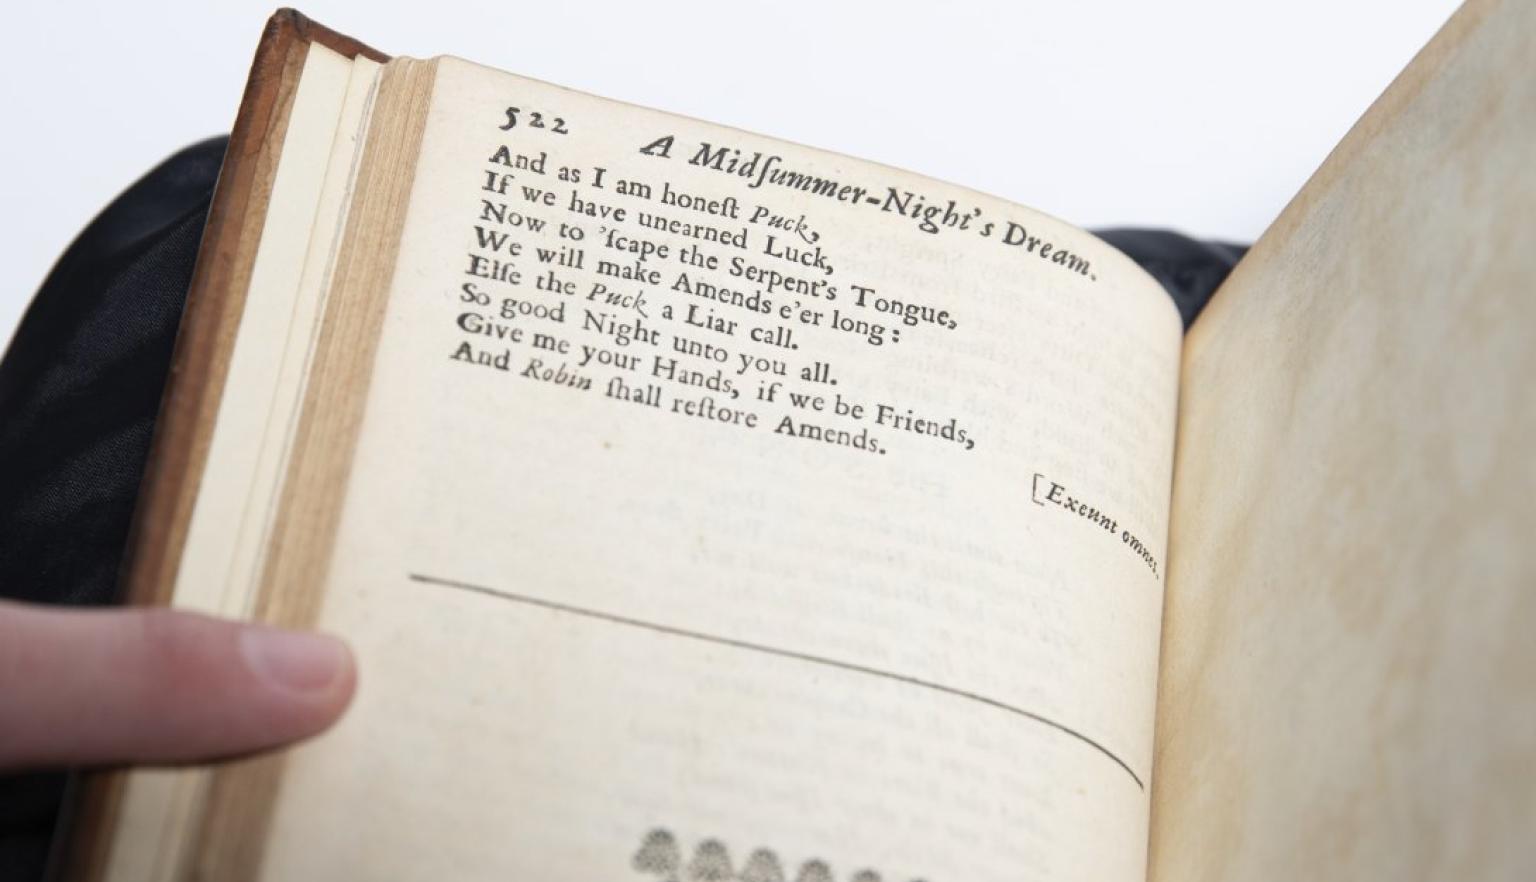 522
A Midſummer-Night's Dream.
And as I am honeſt Puck,
If we have unearned Luck,
Now to 'ſcape the Serpent's Tongue,
We will make Amends e'er long:
Elſe the Puck a Liar call.
So good Night unto you all.
Give me your Hands, if we be Friends,
And Robin ſhall reſtore Amends.
[Exeunt omnes.